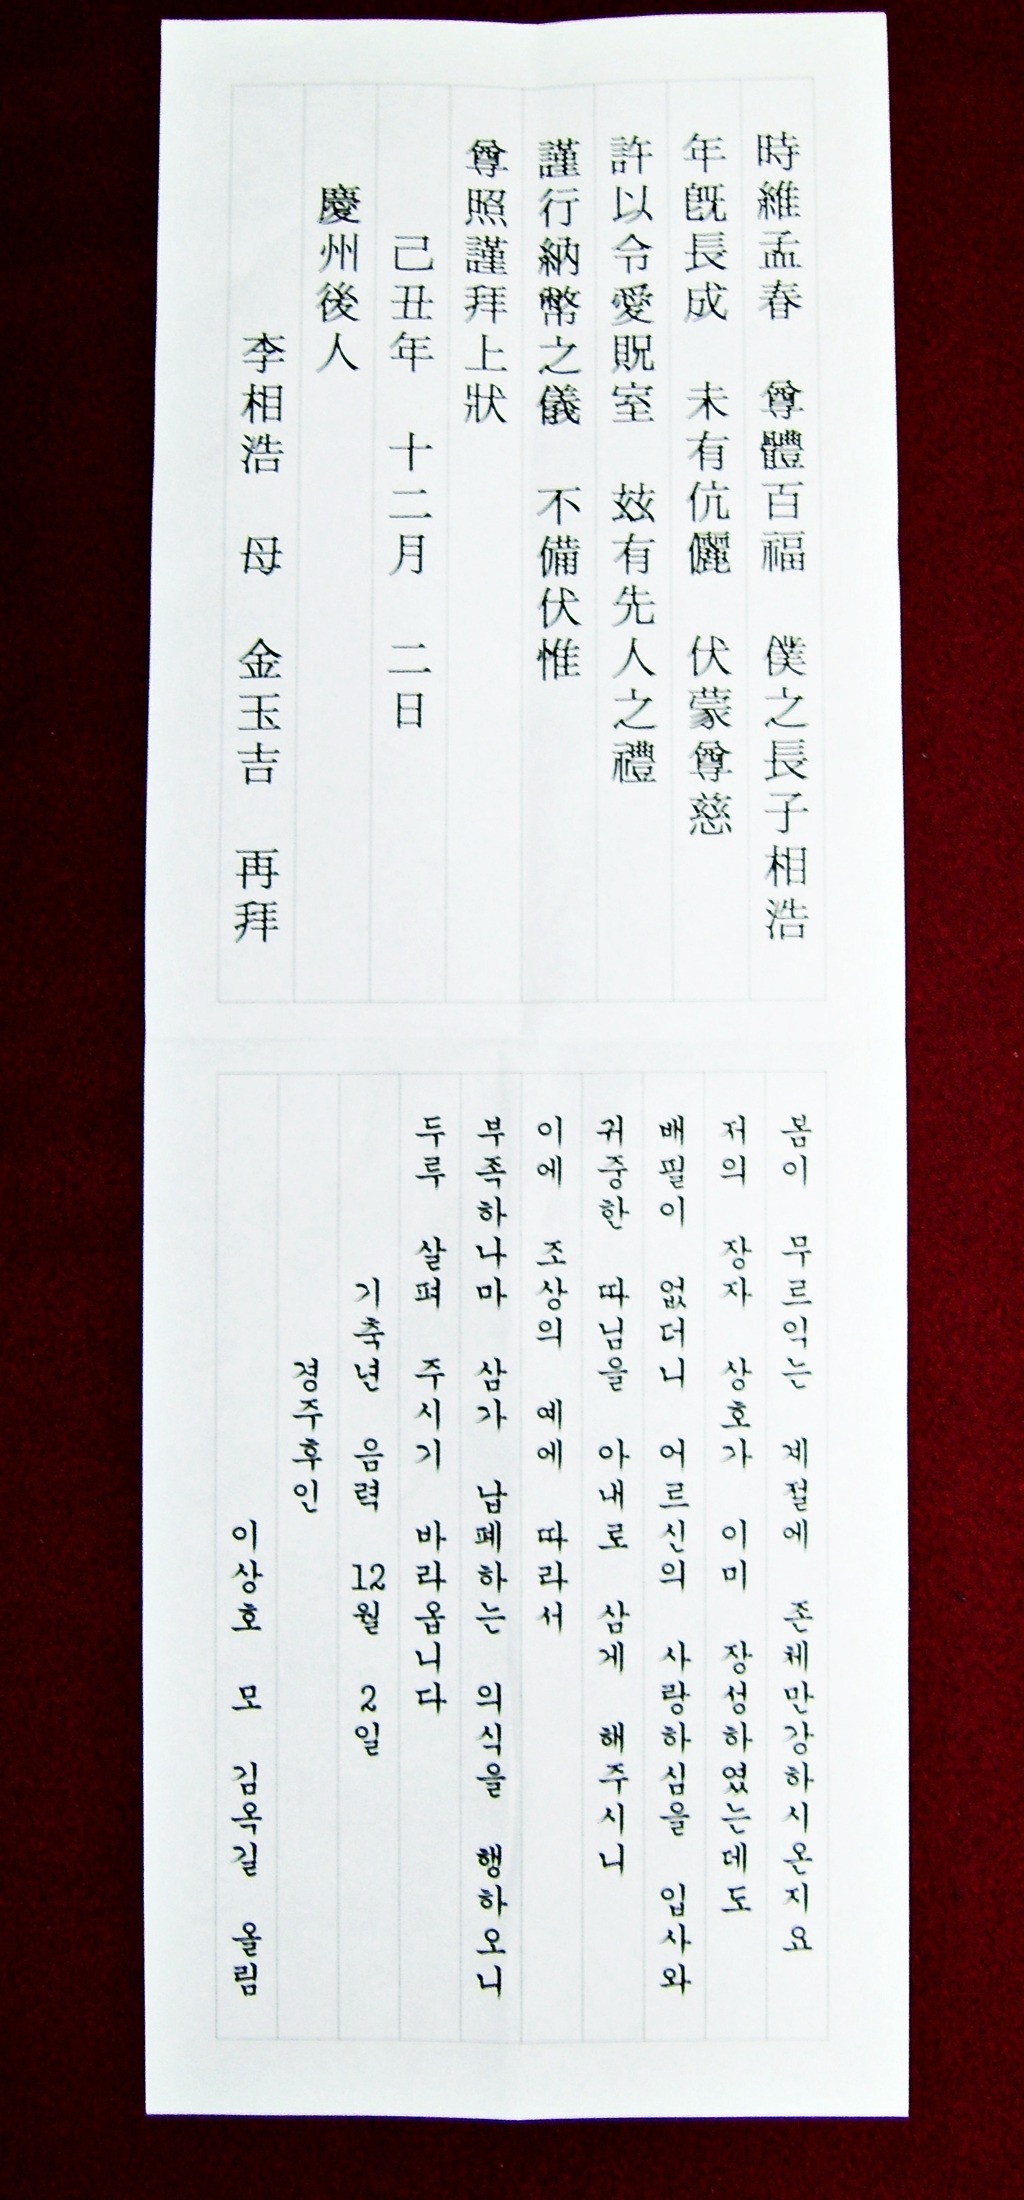 時維孟春 尊體百福 僕之長子相浩
年旣長成 未有伉儷 伏蒙尊慈
許以令愛貺室 玆有先人之禮
謹行納幣之儀 不備伏惟
尊照謹拜上狀
己丑年 十二月 二日
慶州後人
李相浩 母 金玉吉 再拜
봄이 무르익는 계절에 존체만강하시온지요
저의 장자 상호가 이미 장성하였는데도
배필이 없더니 어르신의 사랑하심을 입사와
귀중한 따님을 아내로 삼게 해주시니
이에 조상의 예에 따라서
부족하나마 삼가 납폐하는 의식을 행하오니
두루 살펴 주시기 바라옵니다
기축년 음력 12월 2일
경주후인
이상호 모 김옥길 올림